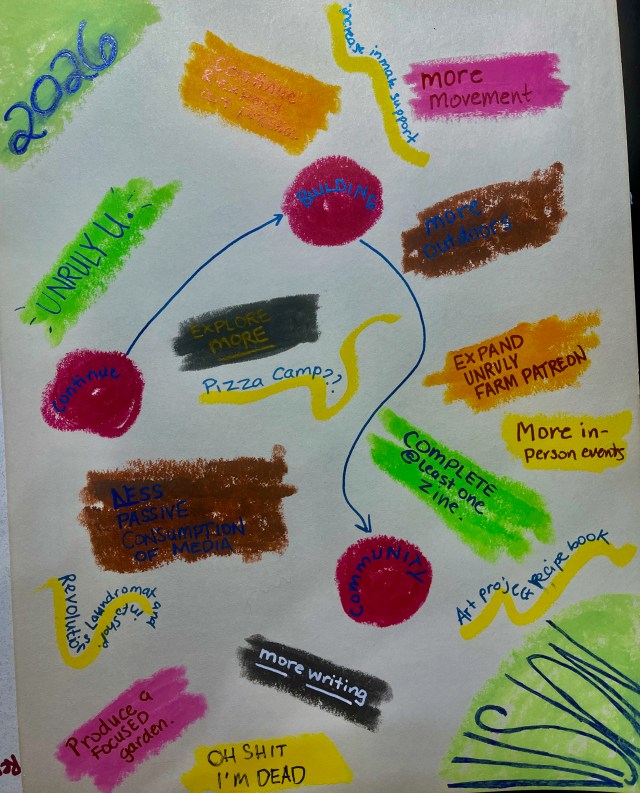 2026
Continue
art
increase inmate support
more
movement
BUILDING
more
outdoors
UNRULY U.
EXPLORE
MORE
Pizza Camp??
Continue
EXPAND
UNRULY
FARM PATREON
More in-
person events
COMPLETE
@least one
zine.
LESS
PASSIVE
CONSUMPTION
OF MEDIA
COMMUNITY
Art project recipe book
Laundromat and
more writing
Produce a
FOCUSED
garden.
OH SHIT
I'M DEAD
VISION